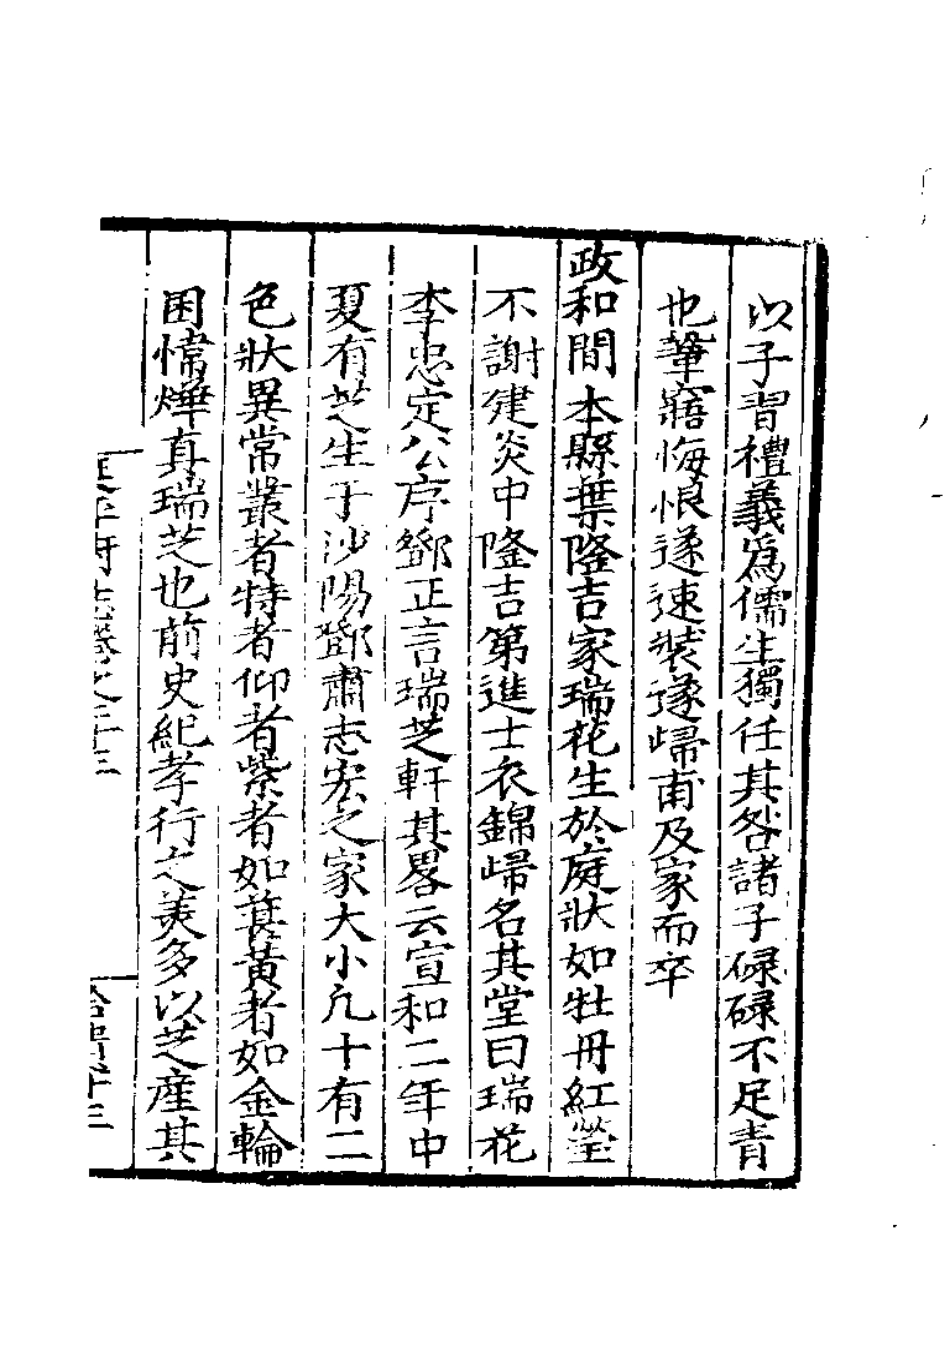 以子習禮義爲儒生獨任其咎諸子碌碌不足責
也肇寤悔恨遂速裝遂歸甫及家而卒
政和間本縣葉隆吉家瑞花生於庭狀如牡丹紅瑩
不謝建炎中隆吉第進士衣錦歸名其堂曰瑞花
李忠定公序鄧正言瑞芝軒其畧云宣和二年中
夏有芝生于沙陽鄧肅志宏之家大小凡十有二
色狀異常叢者特者仰者紫者如蓂黃者如金輪
囷愇燁真瑞芝也前史紀孝行之美多以芝產其
府志卷之二十三